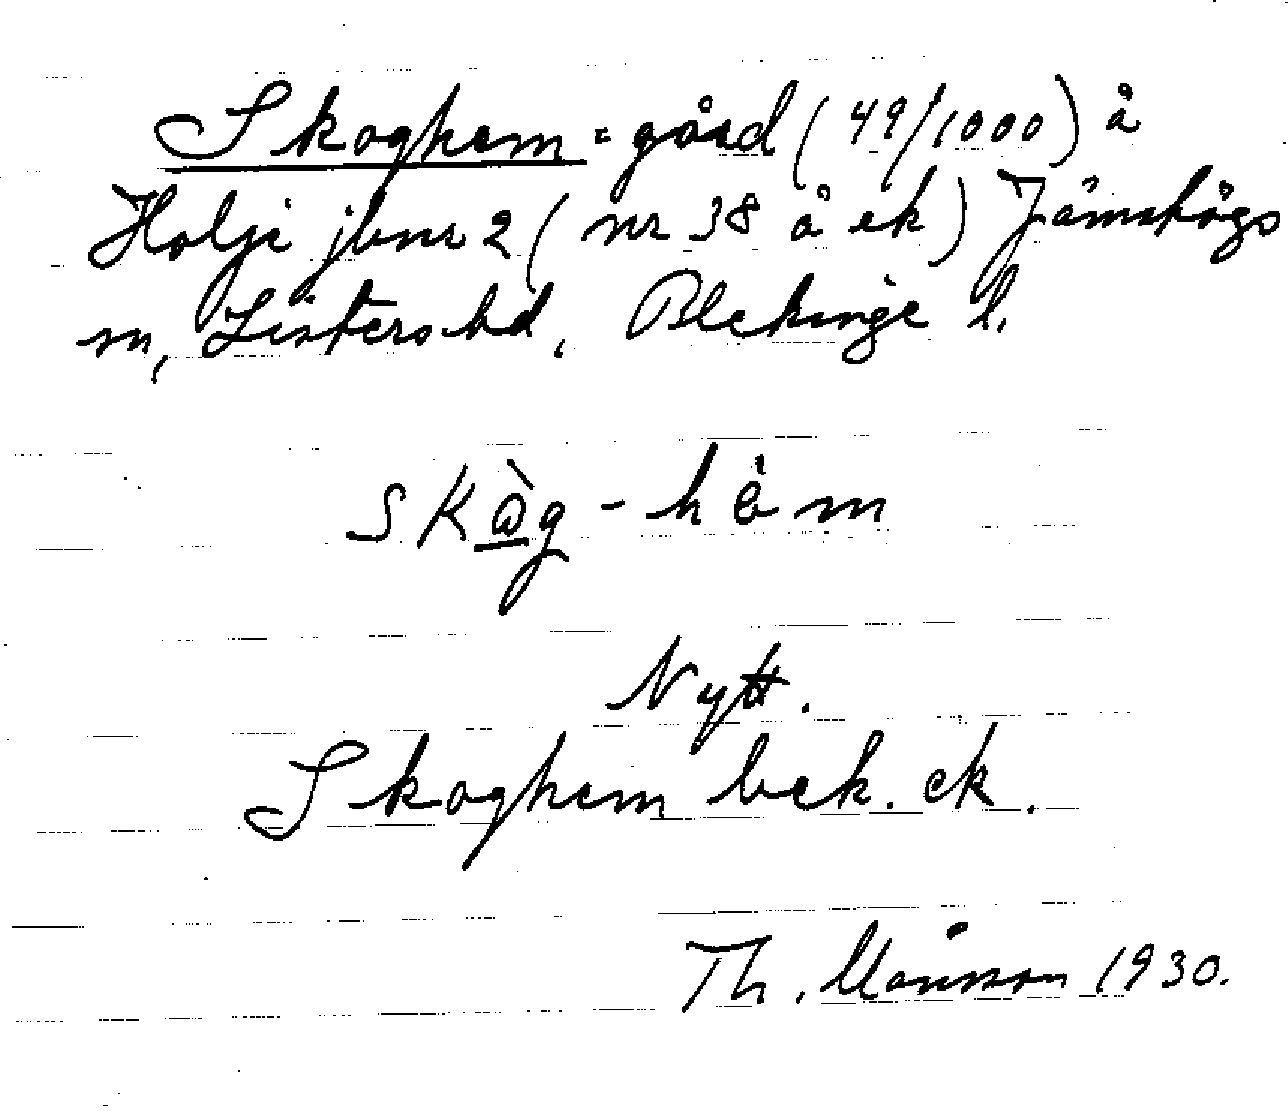 Skoghem = gård (49/1000) å
Holje jbnr 2 (nr 38 å ek) Jämshögs
sn, Listers hd, Blekinge l.
skò̱g - hèm
Nytt.
Skoghem bek. ek.
Th. Månsson 1930.